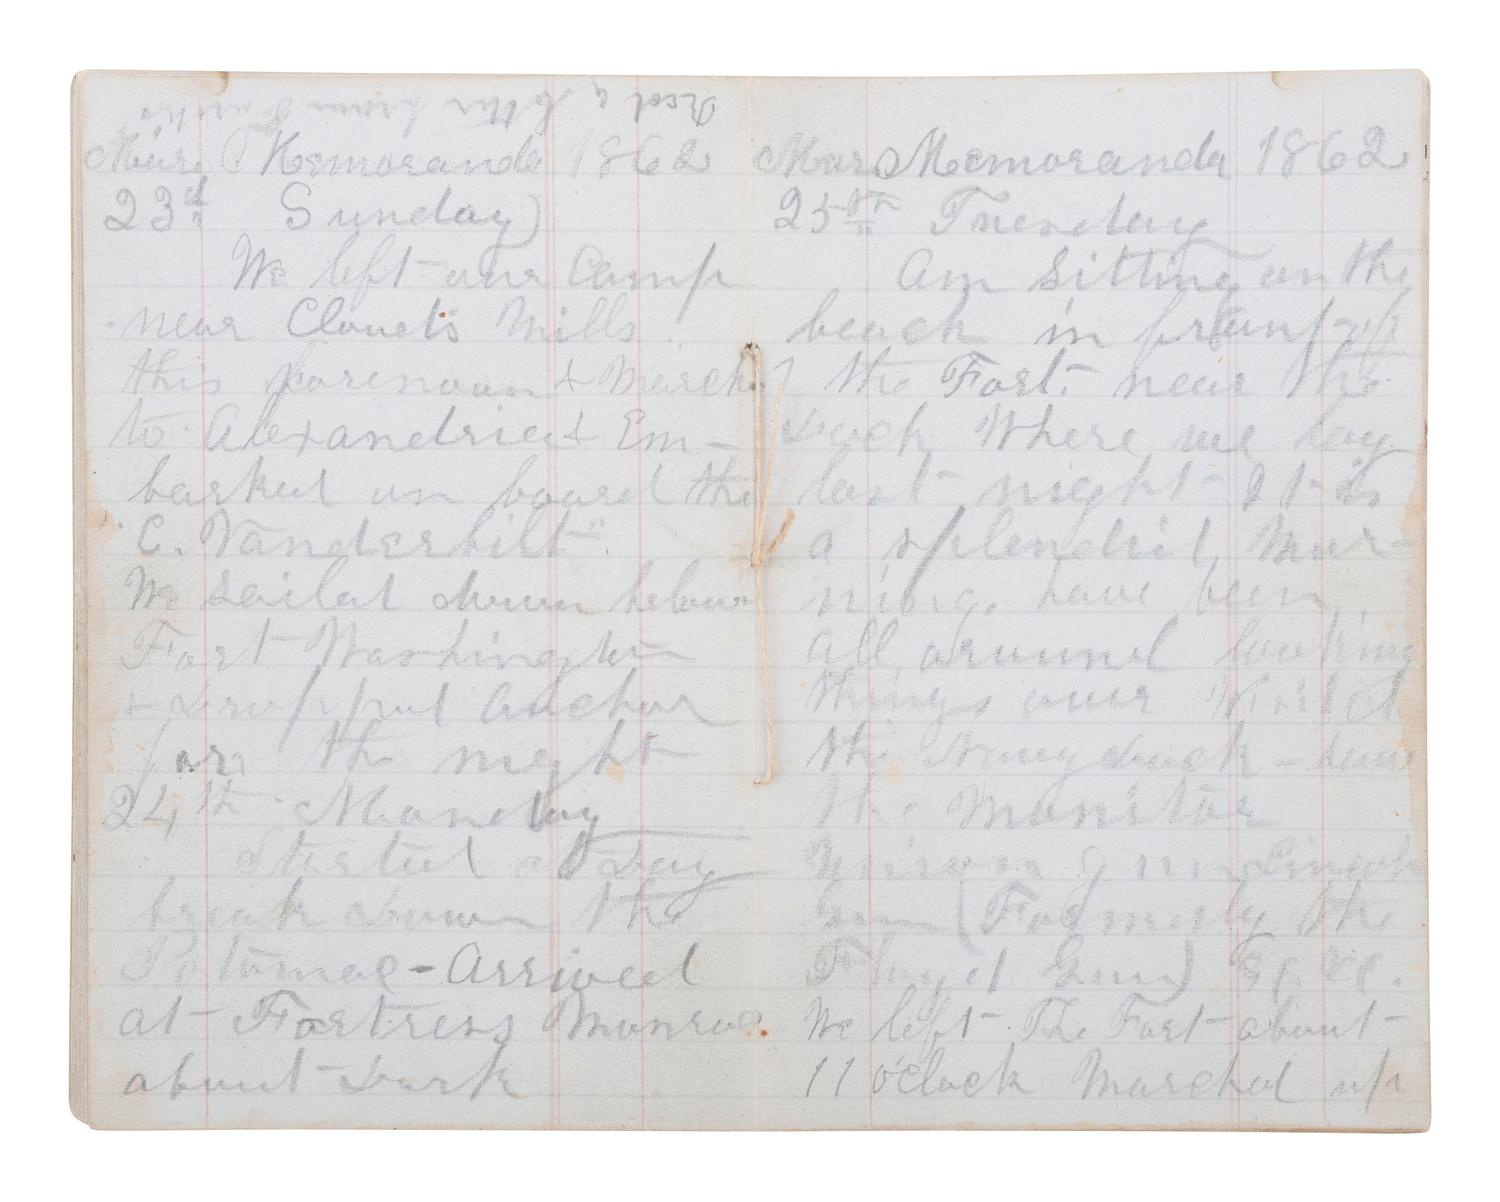 Recd a letter from
Mar Memoranda 1862
23d Sunday
We left our Camp
near Clouets Mills
this forenoon & March
to Alexandria & Em-
barked on board the
C. Vanderbilt".
We sailed down below
Fort Washington
& Dropped Anchor
for the night
24th Monday
Started at Day
break down the
Potomac - Arrived
at Fortress Monroe
about Dark
Mar Memoranda 1862
25th Tuesday
Am Sitting on the
beach in front of
the Fort. near the
Dock Where we lay
last night It is
a splendid Mor-
ning. have been
all around looking
things over Visited
the Navy dock - saw
the Monitor
Union Gun Lincoln
Gun (Formerly the
Floyd Gun) &c. &c.
We left The Fort about
11 o'clock Marched up